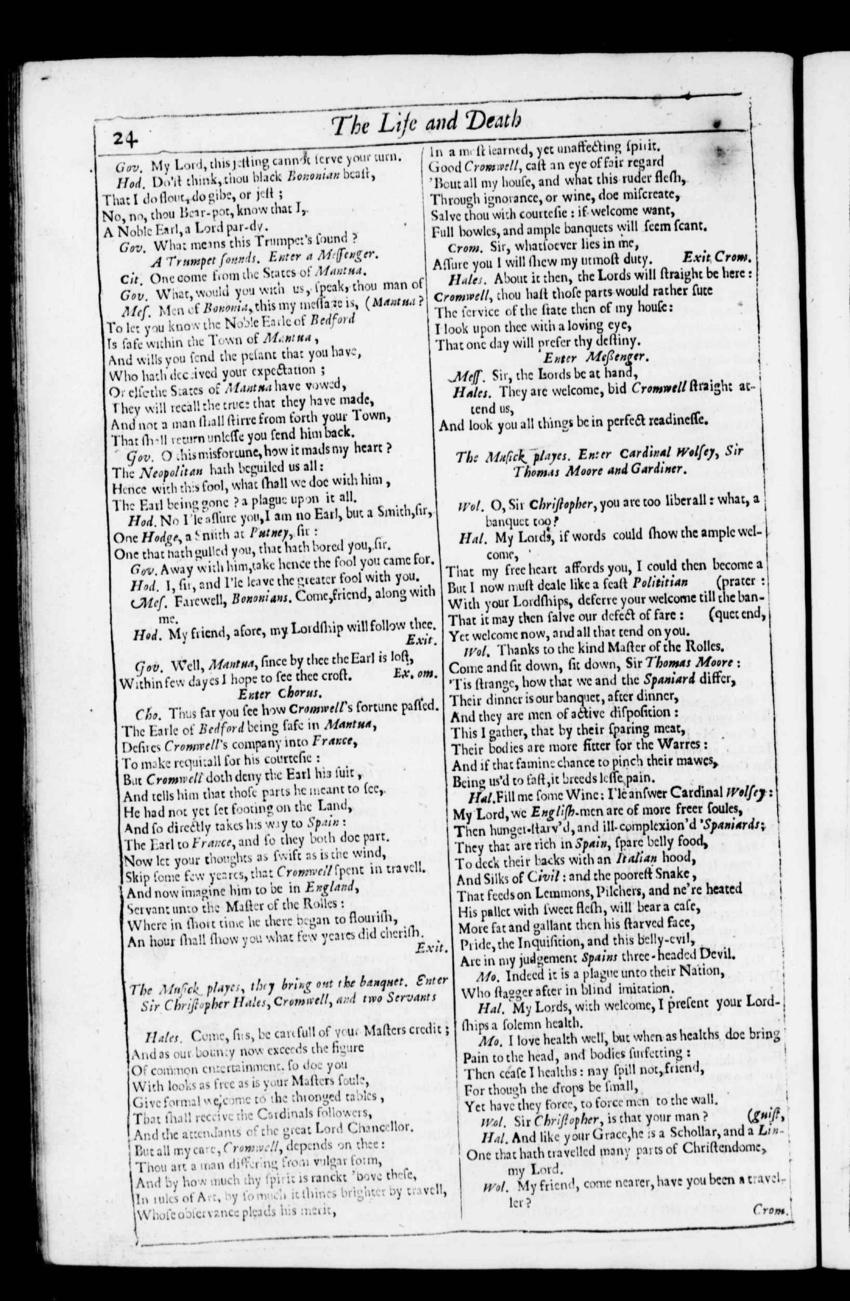 24
The Life and Death
Gov. My Lord, this jesting cannot serve your turn.
Hod. Do'st think, thou black Bononian beast,
That I do flout, do gibe, or jest ;
No, no, thou Bear-pot, know that I,
A Noble Earl, a Lord par-dy.
Gov. What means this Trumpet's sound ?
A Trumpet sounds. Enter a Messenger.
Cit. One come from the States of Mantua.
Gov. What, would you with us, speak, thou man of
Mes. Men of Bononia, this my message is, (Mantua ?
To let you know the Noble Earle of Bedford
Is safe within the Town of Mantua,
And wills you send the pesant that you have,
Who hath deceived your expectation ;
Or else the States of Mantua have vowed,
They will recall the truce that they have made,
And not a man shall stirre from forth your Town,
That shall return unlesse you send him back.
Gov. O this misfortune, how it mads my heart ?
The Neopolitan hath beguiled us all :
Hence with this fool, what shall we doe with him,
The Earl being gone ? a plague upon it all.
Hod. No I'le assure you, I am no Earl, but a Smith, sir,
One Hodge, a Smith at Putney, sir :
One that hath gulled you, that hath bored you, sir.
Gov. Away with him, take hence the fool you came for.
Hod. I, sir, and I'le leave the greater fool with you.
Mes. Farewell, Bononians. Come, friend, along with
me.
Hod. My friend, afore, my Lordship will follow thee.
Exit.
Gov. Well, Mantua, since by thee the Earl is lost,
Within few dayes I hope to see thee crost. Ex. om.
Enter Chorus.
Cho. Thus far you see how Cromwell's fortune passed.
The Earle of Bedford being safe in Mantua,
Desires Cromwell's company into France,
To make requitall for his courtesie :
But Cromwell doth deny the Earl his suit,
And tells him that those parts he meant to see,
He had not yet set footing on the Land,
And so directly takes his way to Spain :
The Earl to France, and so they both doe part.
Now let your thoughts as swift as is the wind,
Skip some few yeares, that Cromwell spent in travell.
And now imagine him to be in England,
Servant unto the Master of the Rolles :
Where in short time he there began to flourish,
An hour shall show you what few yeares did cherish.
Exit.
The Musick playes, they bring out the banquet. Enter
Sir Christopher Hales, Cromwell, and two Servants
Hales. Come, sirs, be carefull of your Masters credit ;
And as our bounty now exceeds the figure
Of common entertainment, so doe you
With looks as free as is your Masters soule,
Give formal welcome to the thronged tables,
That shall receive the Cardinals followers,
And the attendants of the great Lord Chancellor.
But all my care, Cromwell, depends on thee :
Thou art a man differing from vulgar form,
And by how much thy spirit is ranckt 'bove these,
In rules of Art, by so much it shines brighter by travell,
Whose observance pleads his merit,
In a most learned, yet unaffecting spirit.
Good Cromwell, cast an eye of fair regard
'Bout all my house, and what this ruder flesh,
Through ignorance, or wine, doe miscreate,
Salve thou with courtesie : if welcome want,
Full bowles, and ample banquets will seem scant.
Crom. Sir, whatsoever lies in me,
Assure you I will shew my utmost duty. Exit Crom.
Hales. About it then, the Lords will straight be here :
Cromwell, thou hast those parts would rather sute
The service of the state then of my house :
I look upon thee with a loving eye,
That one day will prefer thy destiny.
Enter Messenger.
Mess. Sir, the Lords be at hand,
Hales. They are welcome, bid Cromwell straight at-
tend us,
And look you all things be in perfect readinesse.
The Musick playes. Enter Cardinal Wolsey, Sir
Thomas Moore and Gardiner.
Wol. O, Sir Christopher, you are too liberall : what, a
banquet too ?
Hal. My Lords, if words could show the ample wel-
come,
That my free heart affords you, I could then become a
But I now must deale like a feast Polititian (prater :
With your Lordships, deferre your welcome till the ban-
That it may then salve our defect of fare : (quet end,
Yet welcome now, and all that tend on you.
Wol. Thanks to the kind Master of the Rolles.
Come and sit down, sit down, Sir Thomas Moore :
'Tis strange, how that we and the Spaniard differ,
Their dinner is our banquet, after dinner,
And they are men of active disposition :
This I gather, that by their sparing meat,
Their bodies are more fitter for the Warres :
And if that famine chance to pinch their mawes,
Being us'd to fast, it breeds lesse pain.
Hal. Fill me some Wine : I'le answer Cardinal Wolsey :
My Lord, we English-men are of more freer soules,
Then hunger-starv'd, and ill-complexion'd Spaniards;
They that are rich in Spain, spare belly food,
To deck their backs with an Italian hood,
And Silks of Civil : and the poorest Snake,
That feeds on Lemmons, Pilchers, and ne're heated
His pallet with sweet flesh, will bear a case,
More fat and gallant then his starved face,
Pride, the Inquisition, and this belly-evil,
Are in my judgement Spains three-headed Devil.
Mo. Indeed it is a plague unto their Nation,
Who stagger after in blind imitation.
Hal. My Lords, with welcome, I present your Lord-
ships a solemn health.
Mo. I love health well, but when as healths doe bring
Pain to the head, and bodies surfetting :
Then cease I healths : nay spill not, friend,
For though the drops be small,
Yet have they force, to force men to the wall.
Wol. Sir Christopher, is that your man ? (guist,
Hal. And like your Grace, he is a Schollar, and a Lin-
One that hath travelled many parts of Christendome,
my Lord.
Wol. My friend, come nearer, have you been a travel-
ler ?
Crom.